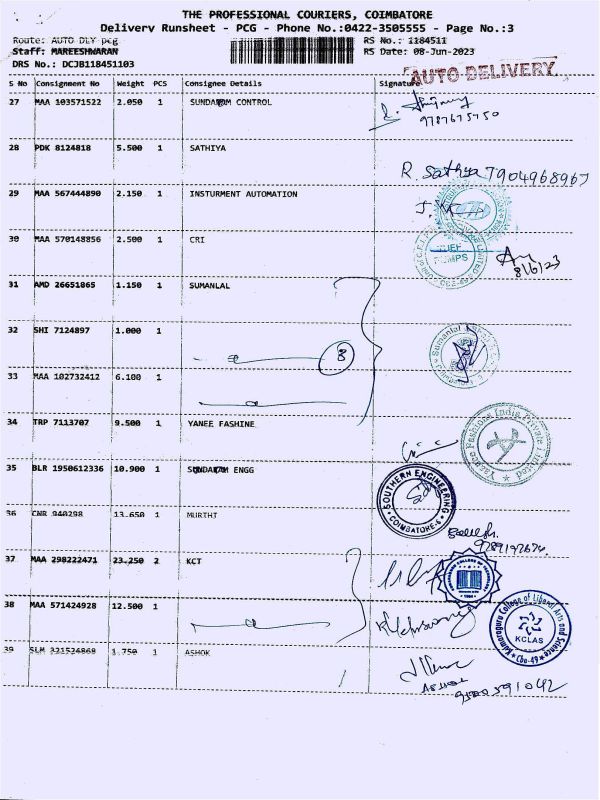 THE PROFESSIONAL COURIERS, COIMBATORE
Delivery Runsheet - PCG - Phone No.:0422-3505555 - Page No.:3
Route: AUTO DLY pcg RS No.: 1184511
Staff: MAREESHWARAN RS Date: 08-Jun-2023
DRS No.: DCJB118451103
AUTO DELIVERY
S No Consignment No Weight PCS Consignee Details Signature
27 MAA 103571522 2.050 1 CONTROL
9787675750
28 PDK 8124818 5.500 1 SATHIYA
R. Sathya 7904968967
29 MAA 567444890 2.150 1 INSTURMENT AUTOMATION
30 MAA 570148856 2.500 1 CRI
8/6/23
31 AMD 26651065 1.150 1 SUMANLAL
32 SHI 7124897 1.000 1
3
33 MAA 102732412 6.100 1
34 TRP 7113707 9.500 1 YANEE FASHINE
35 BLR 1950612336 10.900 1 ENGG
SOUTHERN ENGINEERING
COIMBATORE-6
36 CNR 940298 13.650 1 MURTHT
37 MAA 298222471 23.250 2 KCT
38 MAA 571424928 12.500 1
Kumaraguru College of Liberal Arts and Science
KCLAS
Cbe-49
39 SLM 321524868 1.750 1 ASHOK